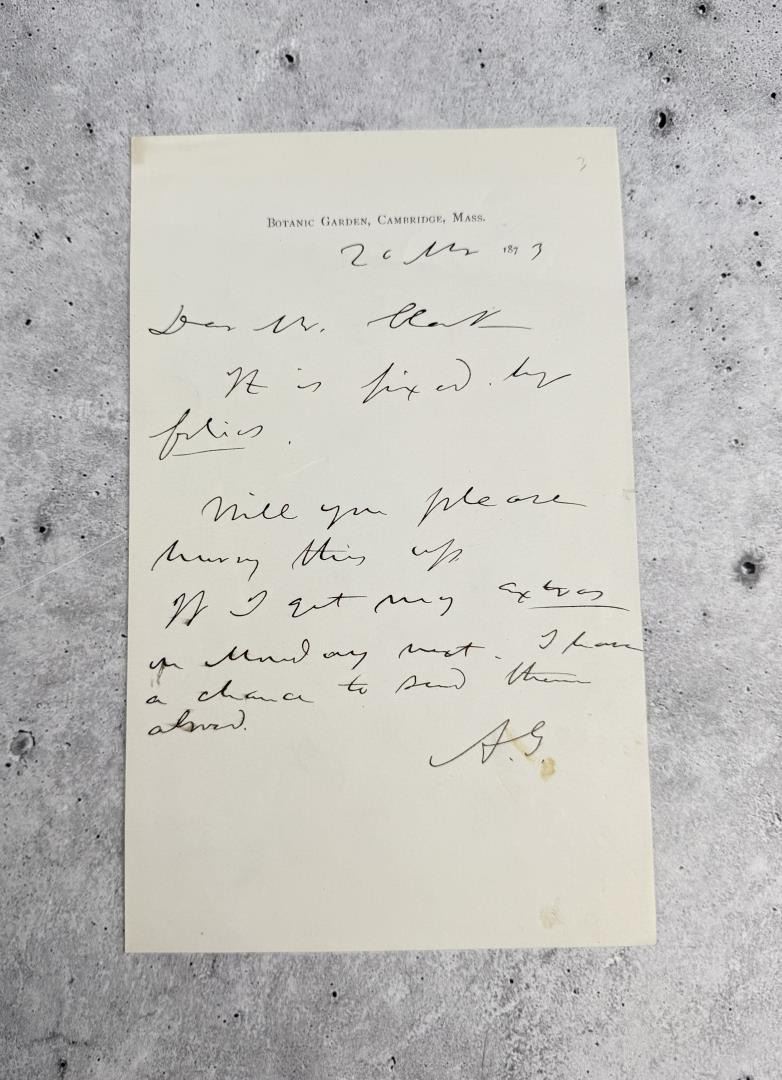 3
BOTANIC GARDEN, CAMBRIDGE, MASS.
1873
Dear Mr. Clark
It is fixed by
folios.
Will you please
hurry this up
If I get my extras
on Monday next. I have
a chance to send them
abroad.
A.G.